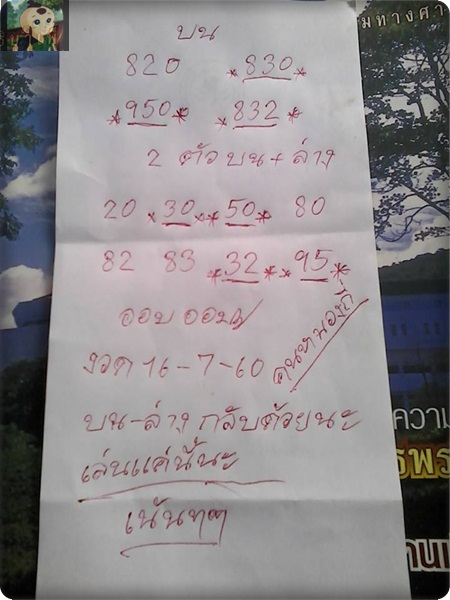 บน
820 *830*
*950* *832*
2 ตัว บน + ล่าง
20 *30**50* 80
82 83 *32**95*
งวด 16-7-60
บน-ล่าง กลับด้วยนะ
เล่นแค่นี้นะ
เน้นๆๆ
มทางศา
ความ
รพร
านเ